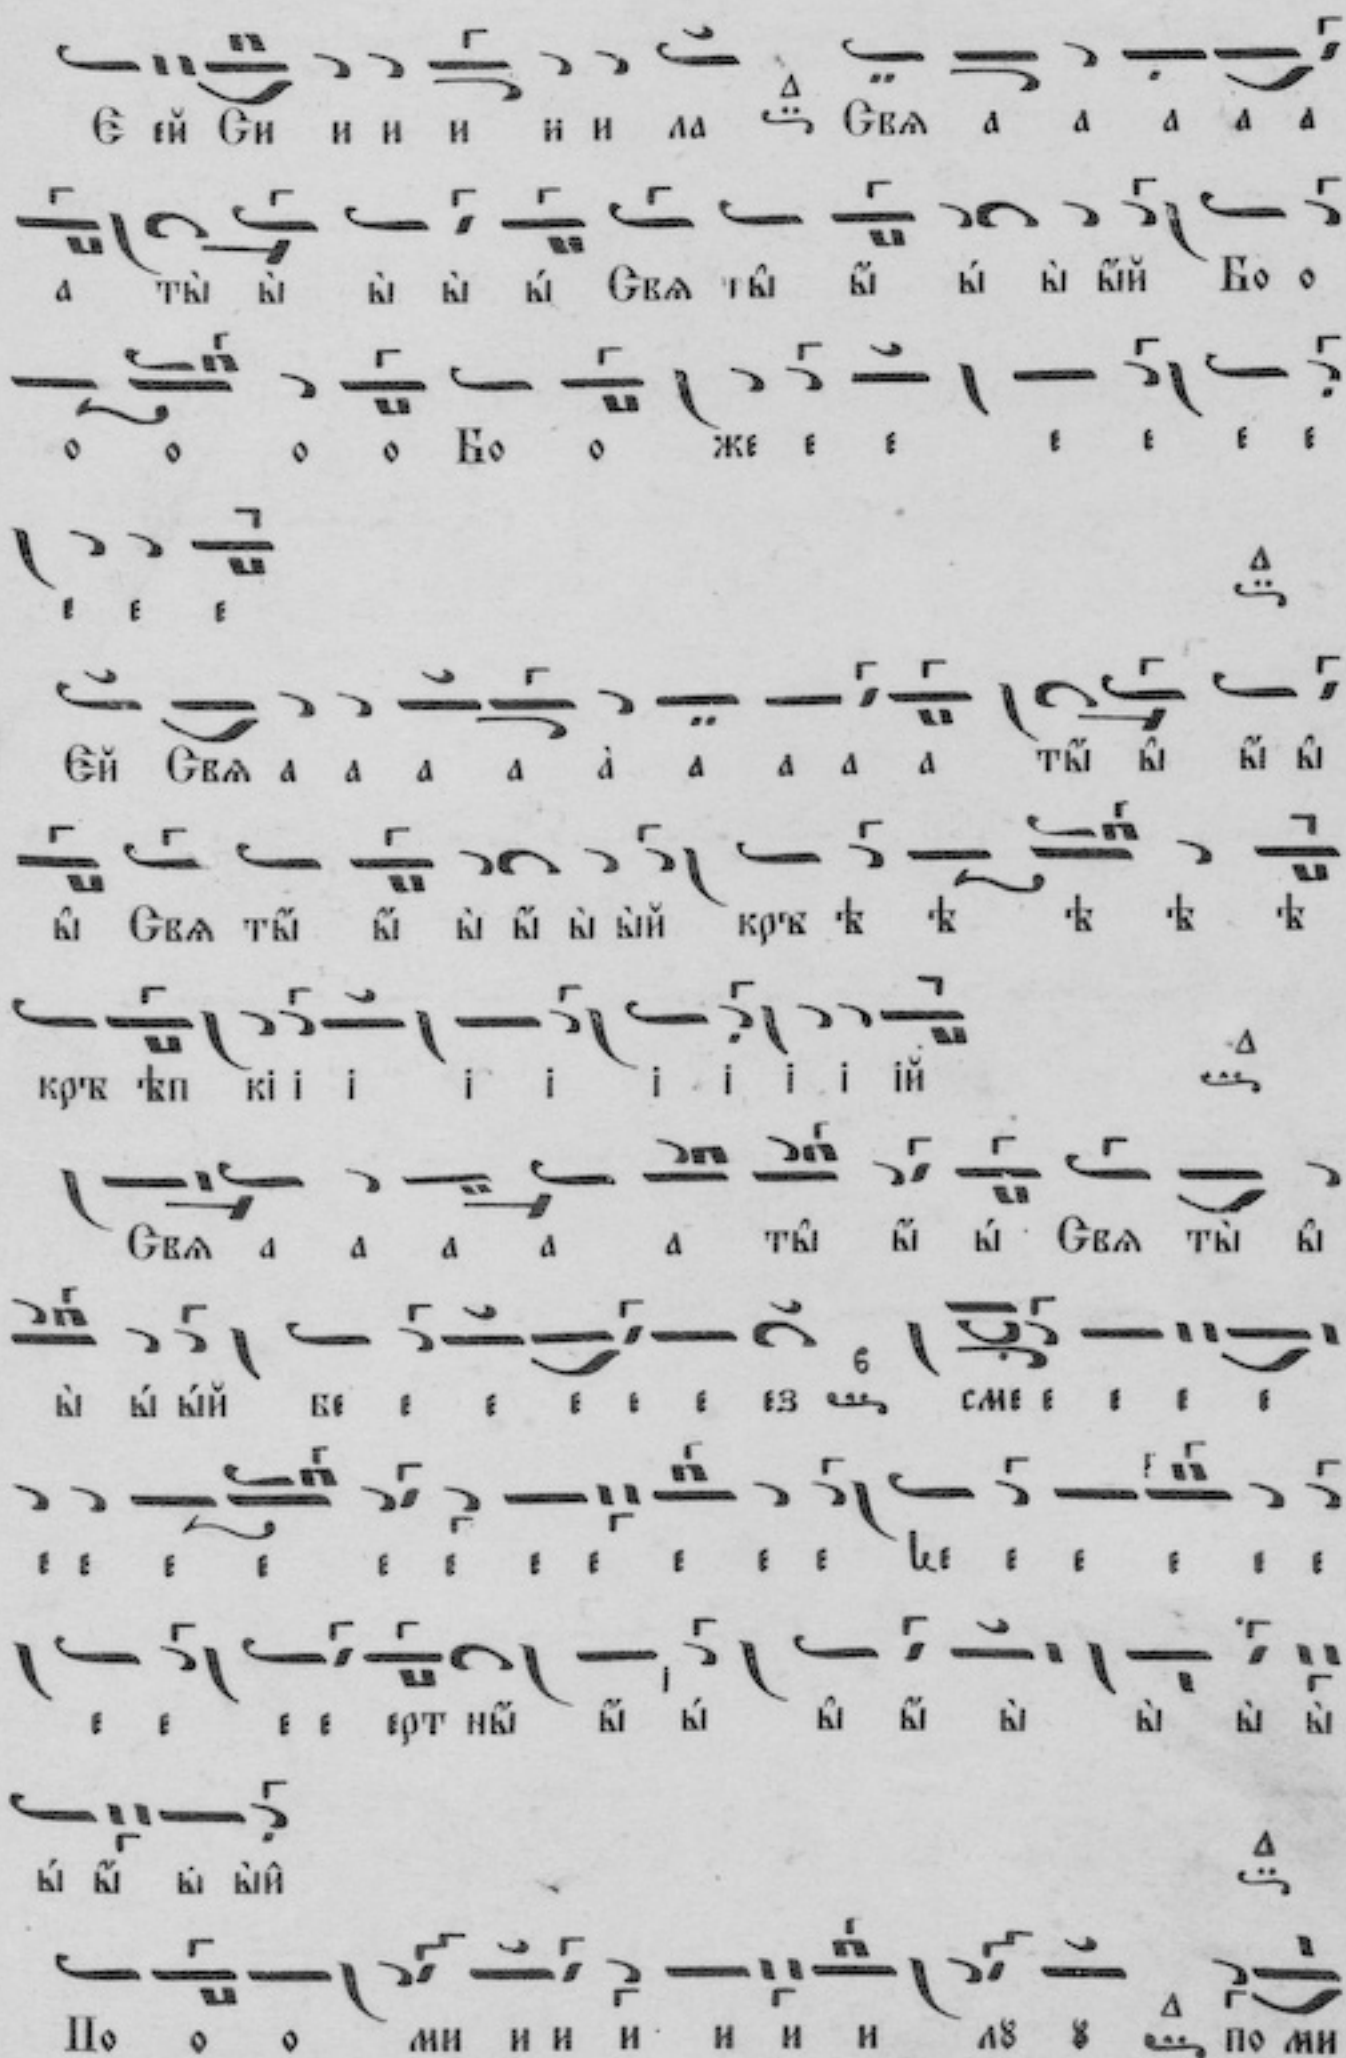 Є ей Си и и и и и ла Δ Свѧ а а а а а
а ты̀ ы̀ ы̀ ы̀ ы́ Свѧ ты̑ ы̃ ы́ ы̀ ы̃й Бо о
о о о о Бо о же е е е е е е
е е е Δ
Єй Свѧ а а а а а̀ а а а а ты̃ ы̑ ы̃ ы̑
ы̑ Свѧ ты̃ ы̃ ы̀ ы̃ ы̀ ы̀й крѣ ѣ ѣ ѣ ѣ ѣ
крѣ ѣп кі і і і і і і і і ій Δ
Свѧ а а а а а ты̑ ы̃ ы́ Свѧ ты̀ ы̑
ы̀ ы́ ы́й бе е е е е е ез б сме е е е е
е е е е е е е е е е е е е е е е
е е е е ерт ны̃ ы̃ ы́ ы̑ ы̃ ы̀ ы̀ ы̀ ы̀
ы́ ы̃ ы ы̀й Δ
По о о ми и и и и и и лꙋ ꙋ Δ по ми